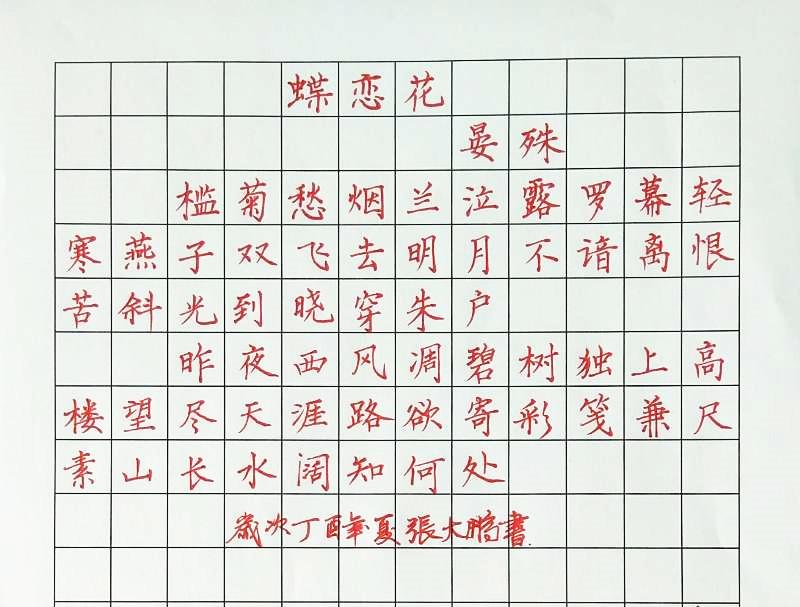 蝶恋花
晏殊
槛菊愁烟兰泣露罗幕轻
寒燕子双飞去明月不谙离恨
苦斜光到晓穿朱户
昨夜西风凋碧树独上高
楼望尽天涯路欲寄彩笺兼尺
素山长水阔知何处
歲次丁酉年夏張大鹏書